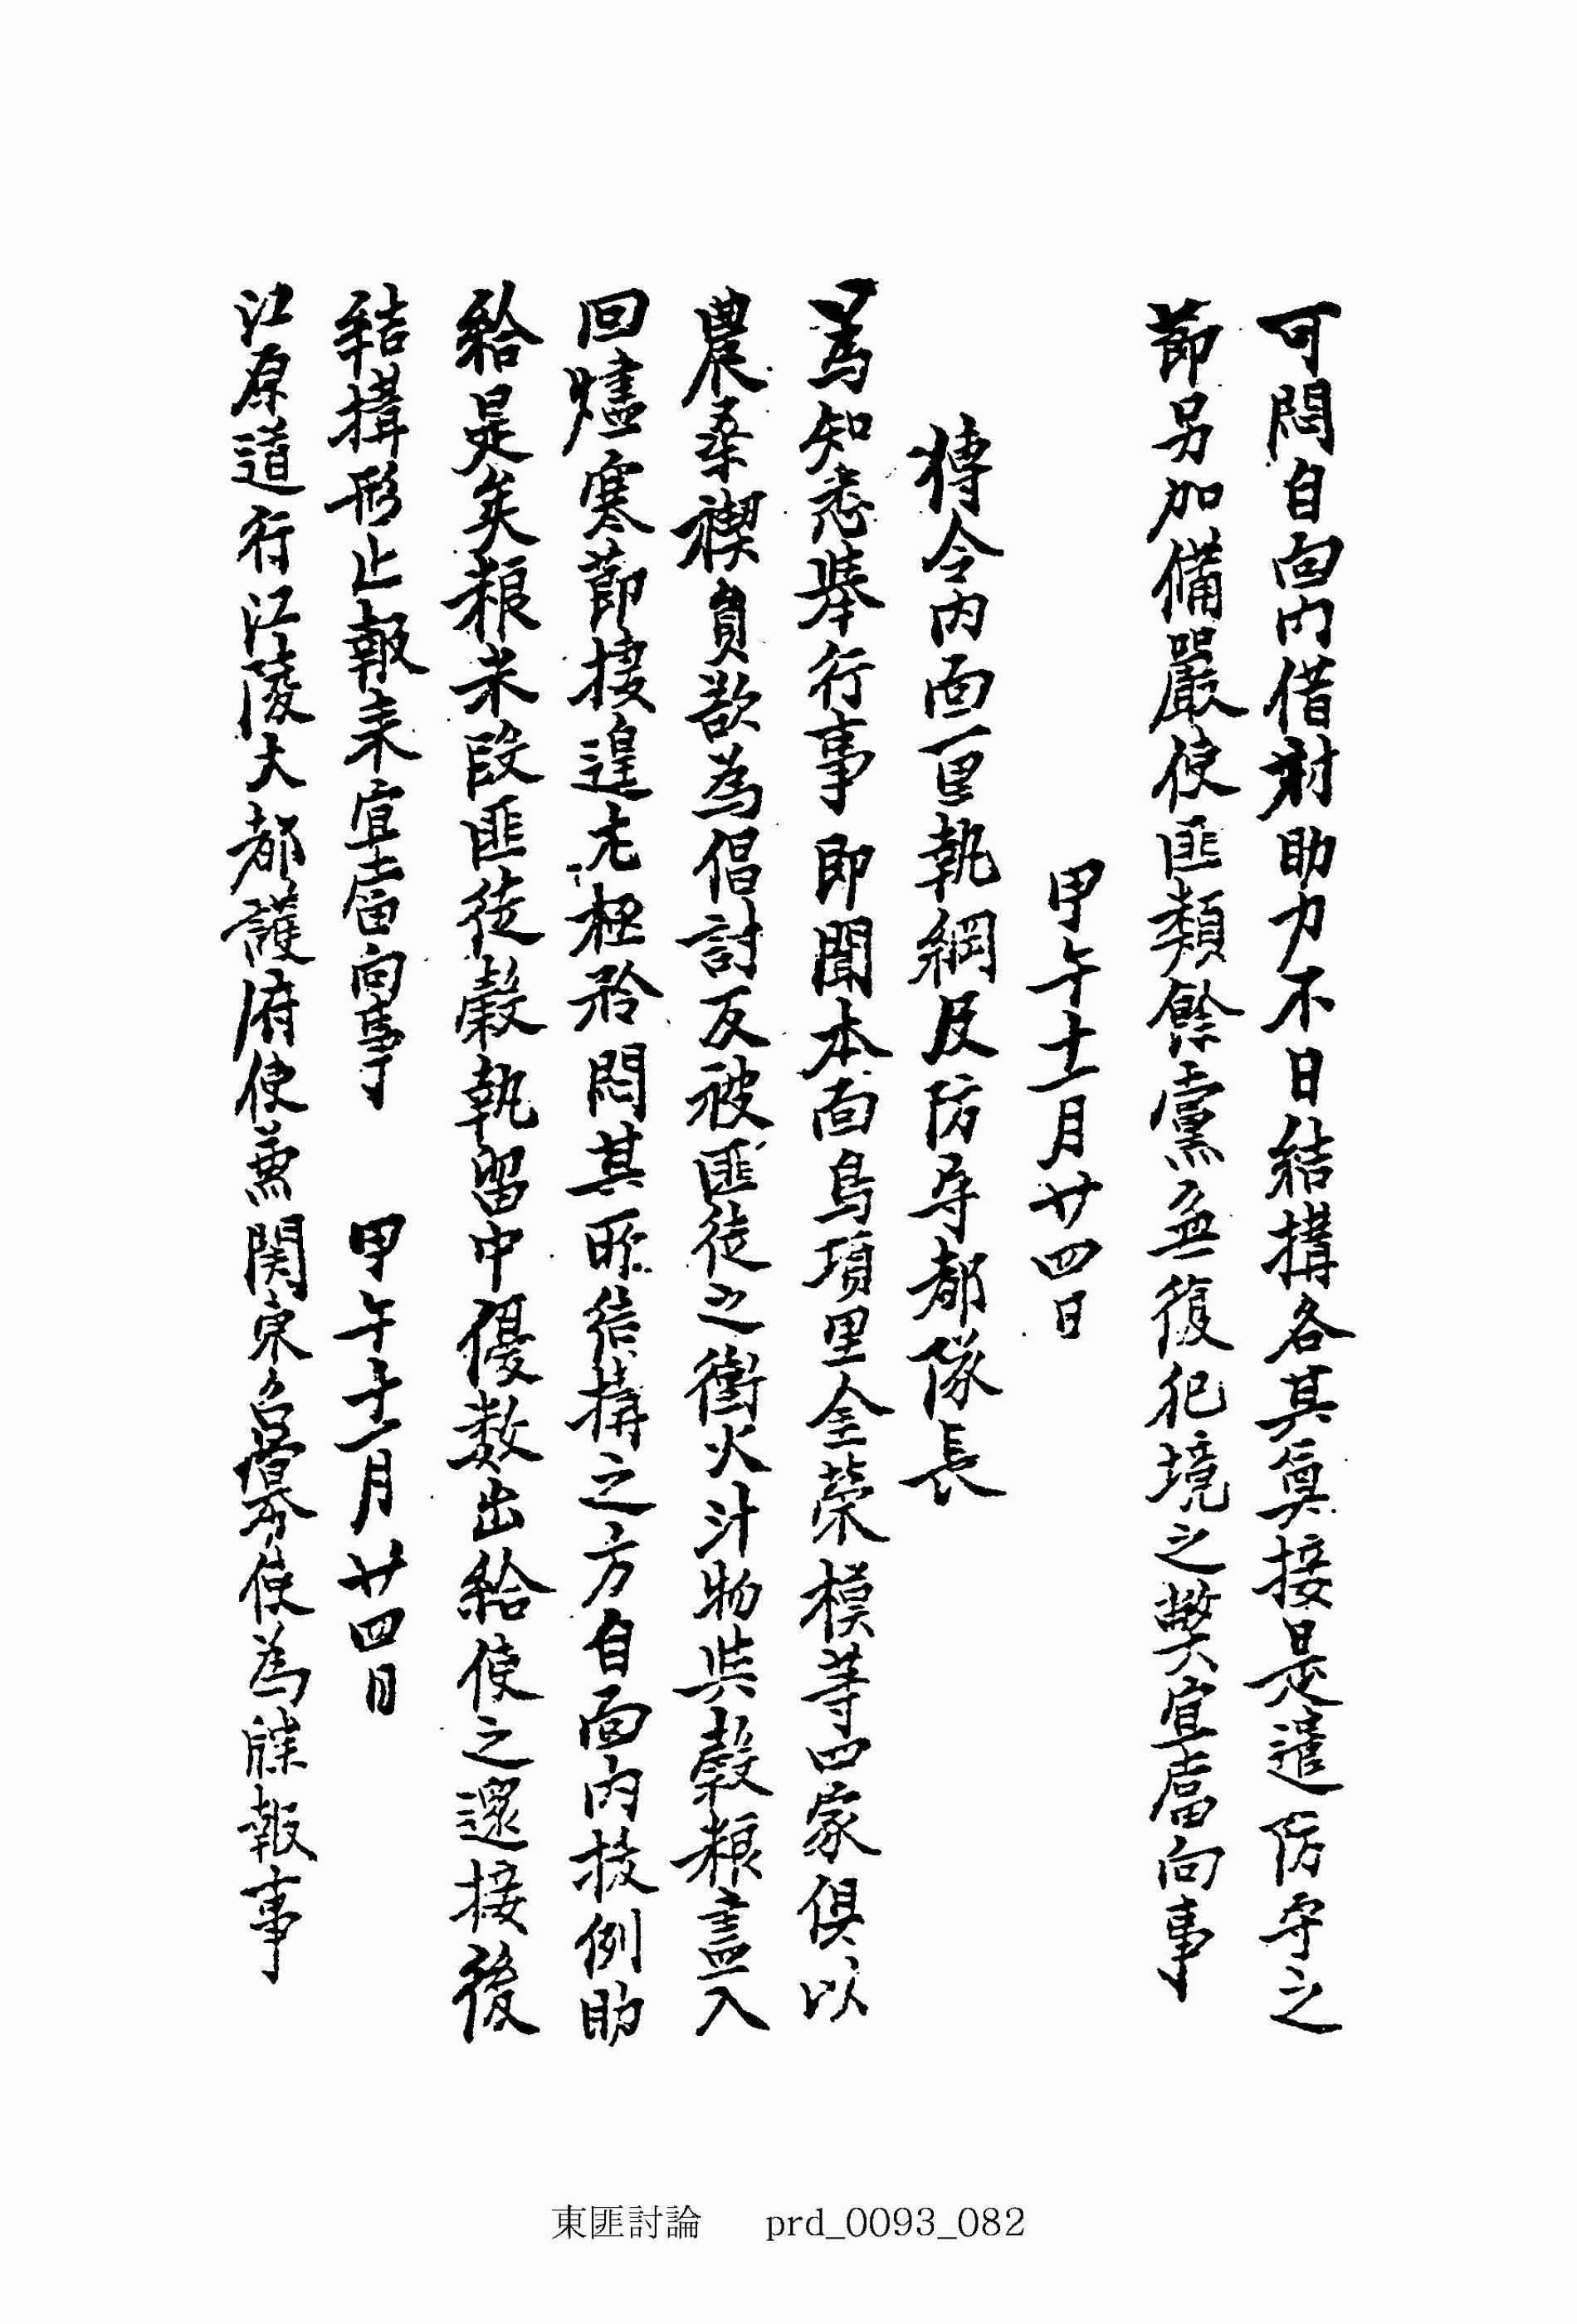 可悶自面內借財助力不日結搆各其奠接是遣防守之
節另加備嚴使匪類餘黨無復犯境之弊宜當向事
甲午十一月廿四日
傳令內面一里執綱及防守都隊長
爲知悉擧行事卽聞本面烏項里金榮模等四家俱以
農桑 員欲爲倡討反被匪徒之衝火汁物與穀粮盡入
回燼寒節接遑尤極矜悶其所結搆之方自面內授例助
給是矣粮米段匪徒穀執留中優數出給使之還接後
結搆形止報來宜當向事 甲午十一月廿四日
江原道行江陵大都護府使兼関東召募使爲牒報事
東匪討論 prd_0093_082